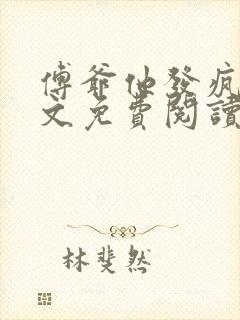 傅爺他發瘋
文免費閱讀
林斐然